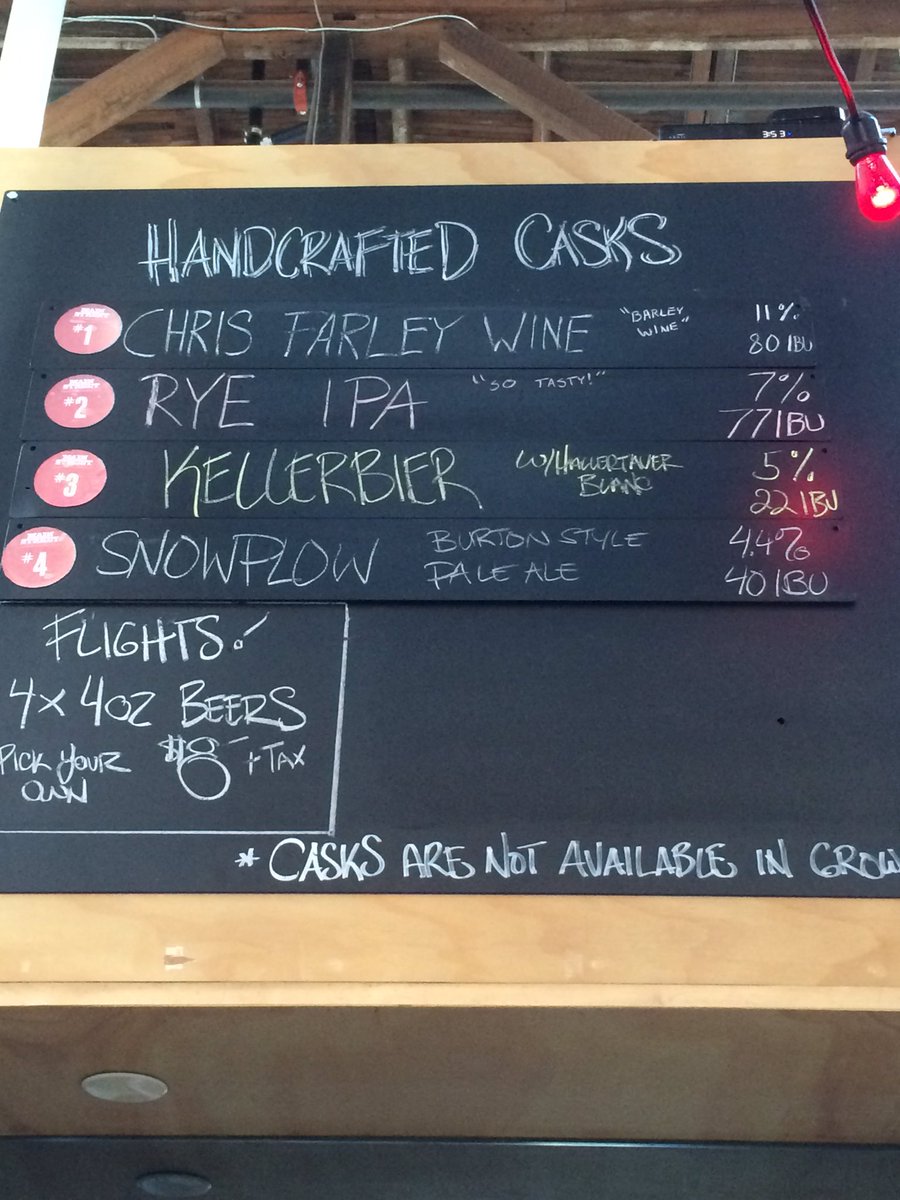 353
HANDCRAFTED CASKS
MAIN STREET #1 CHRIS FARLEY WINE "BARLEY WINE" 11% 80 IBU
MAIN STREET #2 RYE IPA "SO TASTY!" 7% 77 IBU
MAIN STREET #3 KELLERBIER W/HALLERTAUER BLANC 5% 22 IBU
MAIN STREET #4 SNOWPLOW BURTON STYLE PALE ALE 4.4% 40 IBU
FLIGHTS!
4x 4oz BEERS
PICK YOUR OWN $8- + TAX
* CASKS ARE NOT AVAILABLE IN GROW